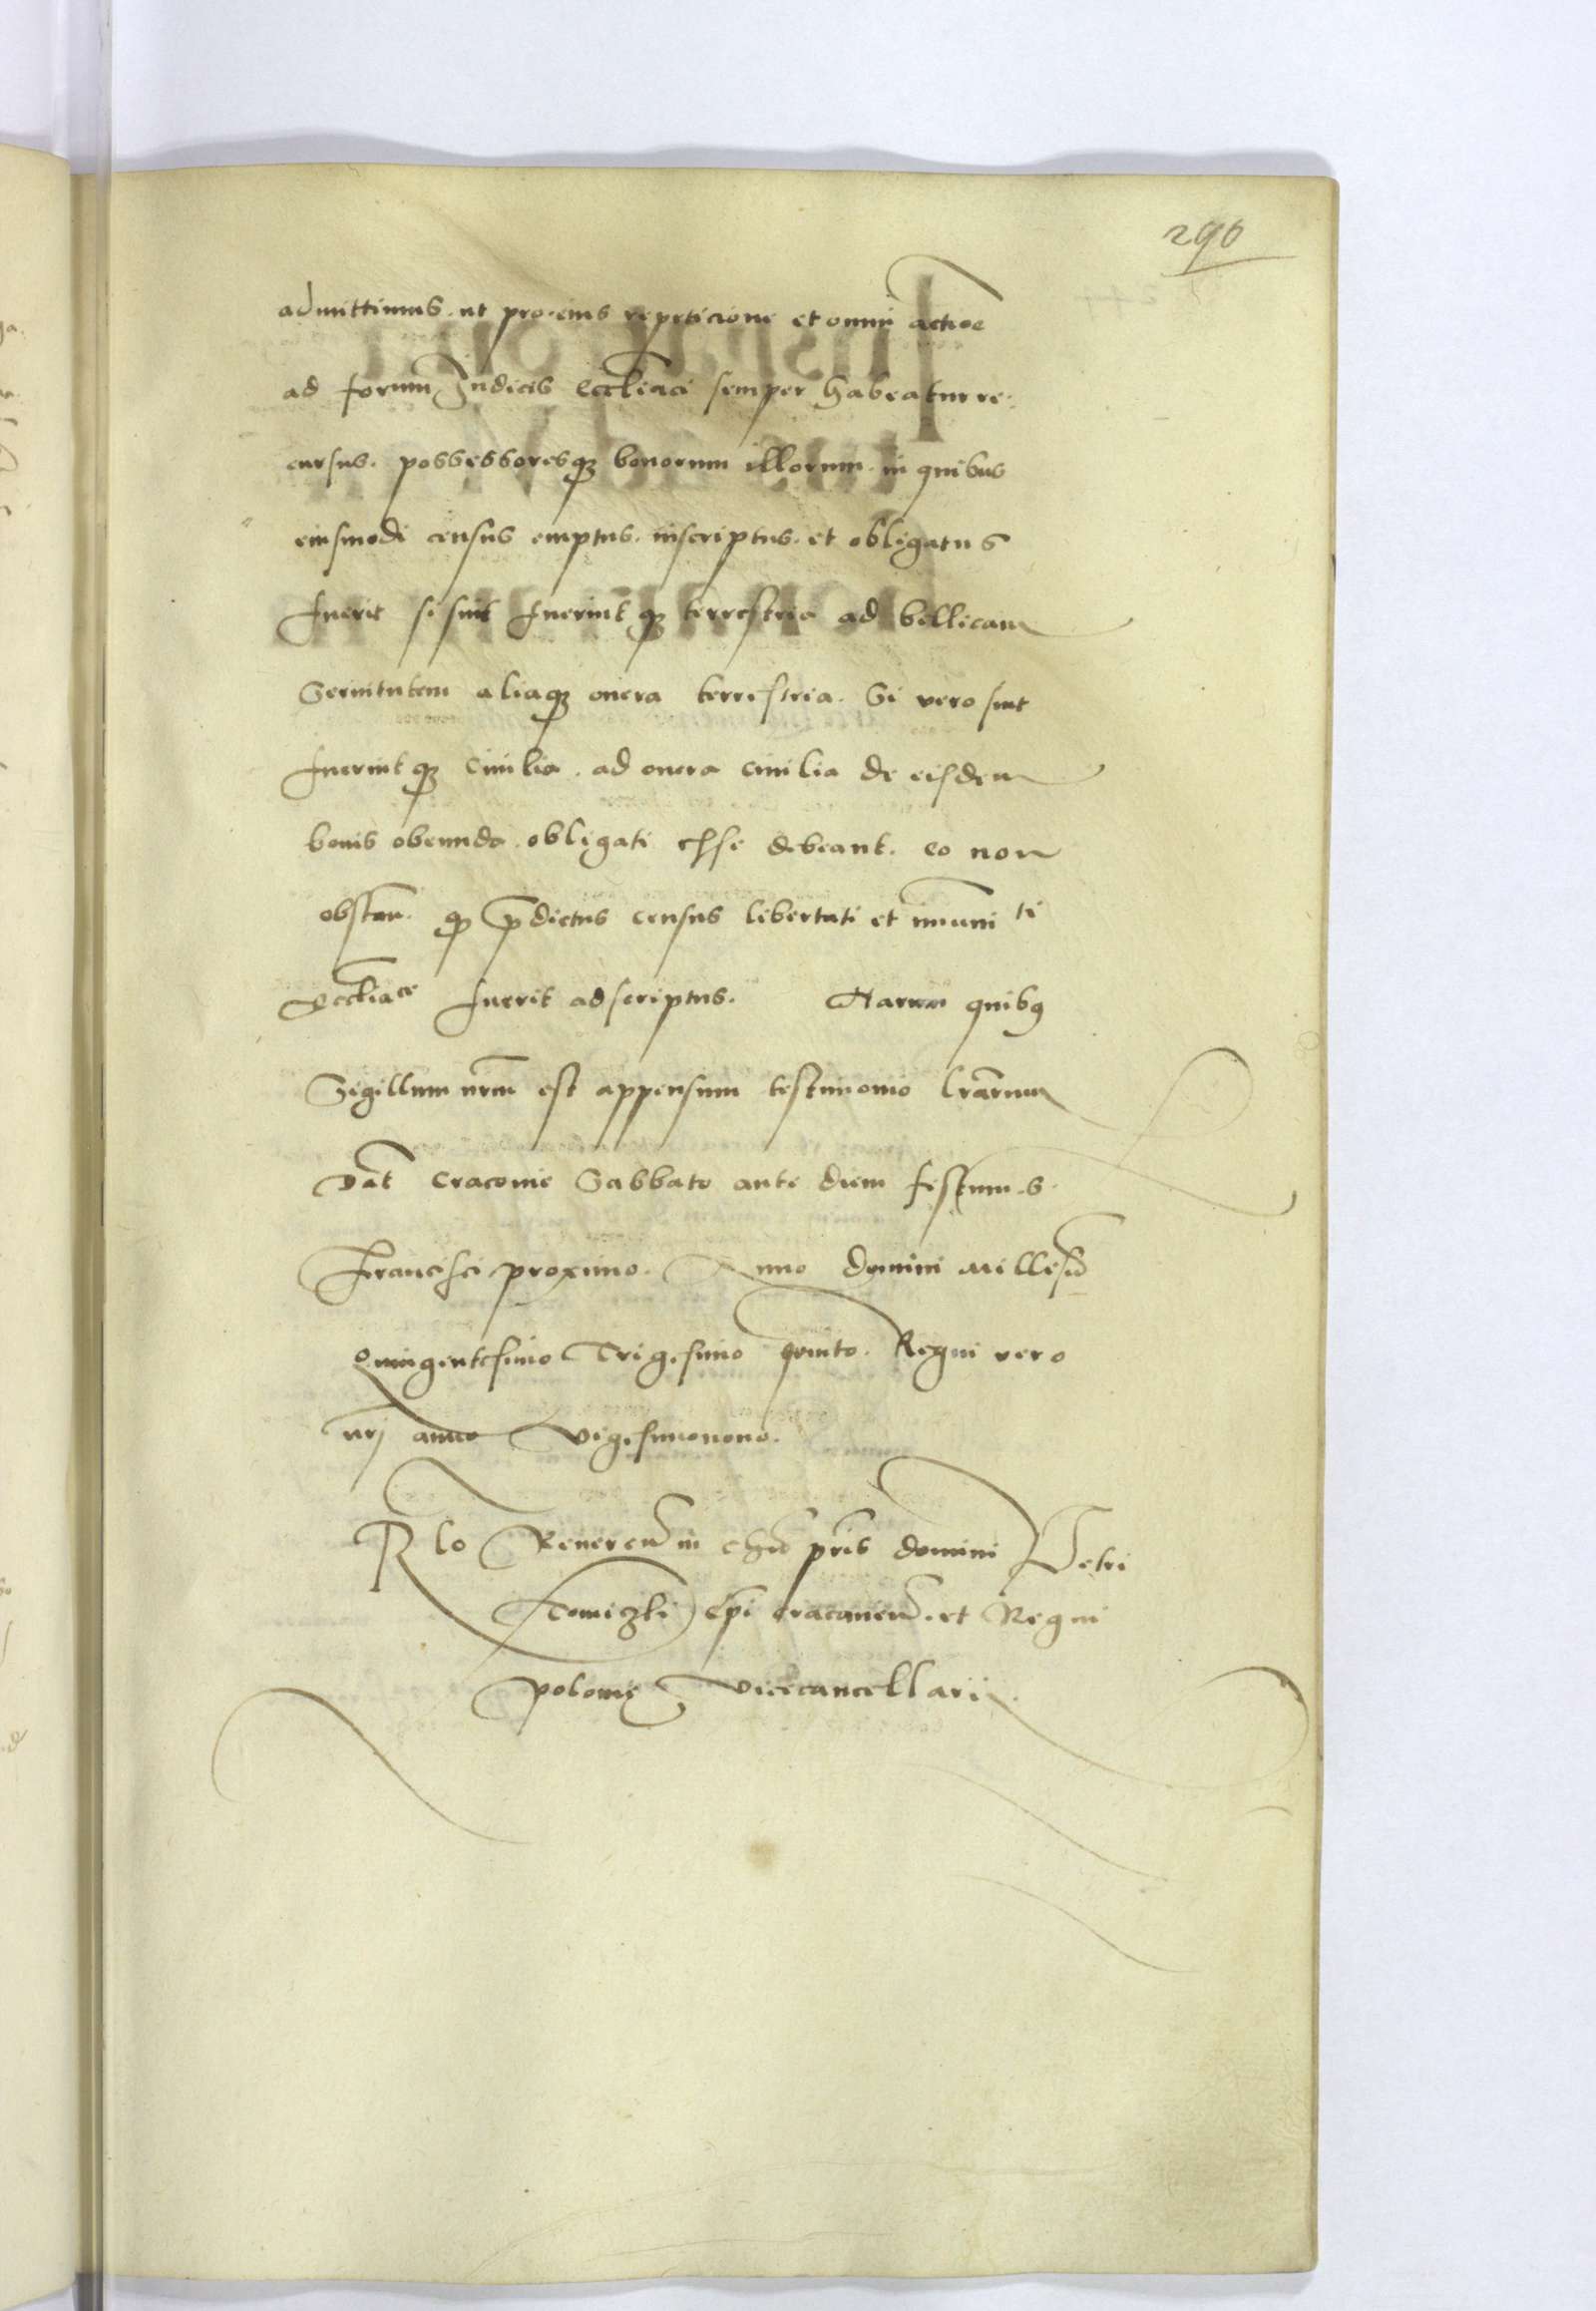 296
admittimus. ut pro eius repeticione et omni actioe
ad forum Judicis eccl̄iaci semper habeatur re-
cursus. possessoresq̨ bonorum illorum. in quibus
eiusmodi census emptus. inscriptus. et obligatus
fuerit si sint fuerintq̨ terrestria ad bellicam
Servitutem aliaq̨ onera terrestria. Si vero sint
fuerintq̨ civilia. ad onera civilia de eisdem
bonis obeunda. obligati esse debeant. eo non
obstan̄. q̨ p̄dictus census libertati et im̄uniti
Eccl̄iace fuerit adscriptus. Harum quibꝯ
Sigillum nr̄m est appensum testimonio lr̄arum
Dat̄ Cracovie Sabbato ante diem festum. S.
Francisci proximo. Anno domini Milless̄
Quingentesimo Trigesimo quinto. Regni vero
nr̄j anno Vigesimonono.
Rlo Reveren̄ in chr̄o pr̄is domini Petri
Tomiczki Ep̄i cracovien̄. et Regni
polonie Vicecancellarij.